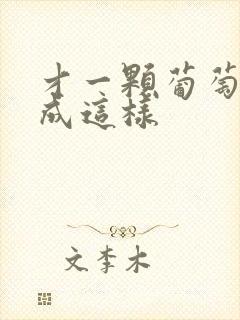 才一顆葡萄
成這樣
文李木